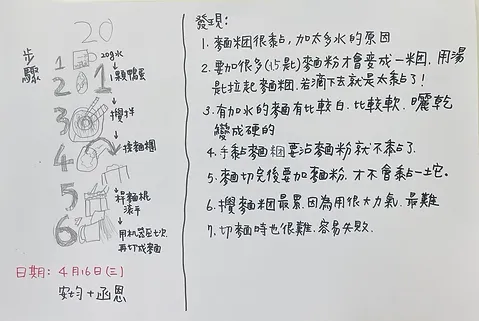 20
步驟
1 20g水
2 1顆鴨蛋
3 攪拌
4 揉麵糰
5 桿麵桃
滾平
6 用机器壓七次
再切成麵
日期: 4月16日(三)
安均+函恩
發現:
1. 麵粉糰很黏,加太多水的原因
2. 要加很多(15匙)麵粉才會變成一米糰,用湯
匙拉起麵糰,若滴下去就是太黏了!
3. 有加水的麵有比較白、比較軟,曬乾
變成硬的
4. 手黏麵糰要沾麵粉就不黏了.
5. 麵切完後要加麵粉,才不會黏一土它。
6. 攪麵糰最累,因為用很大力氣、最難
7. 切麵時也很難、容易失敗.